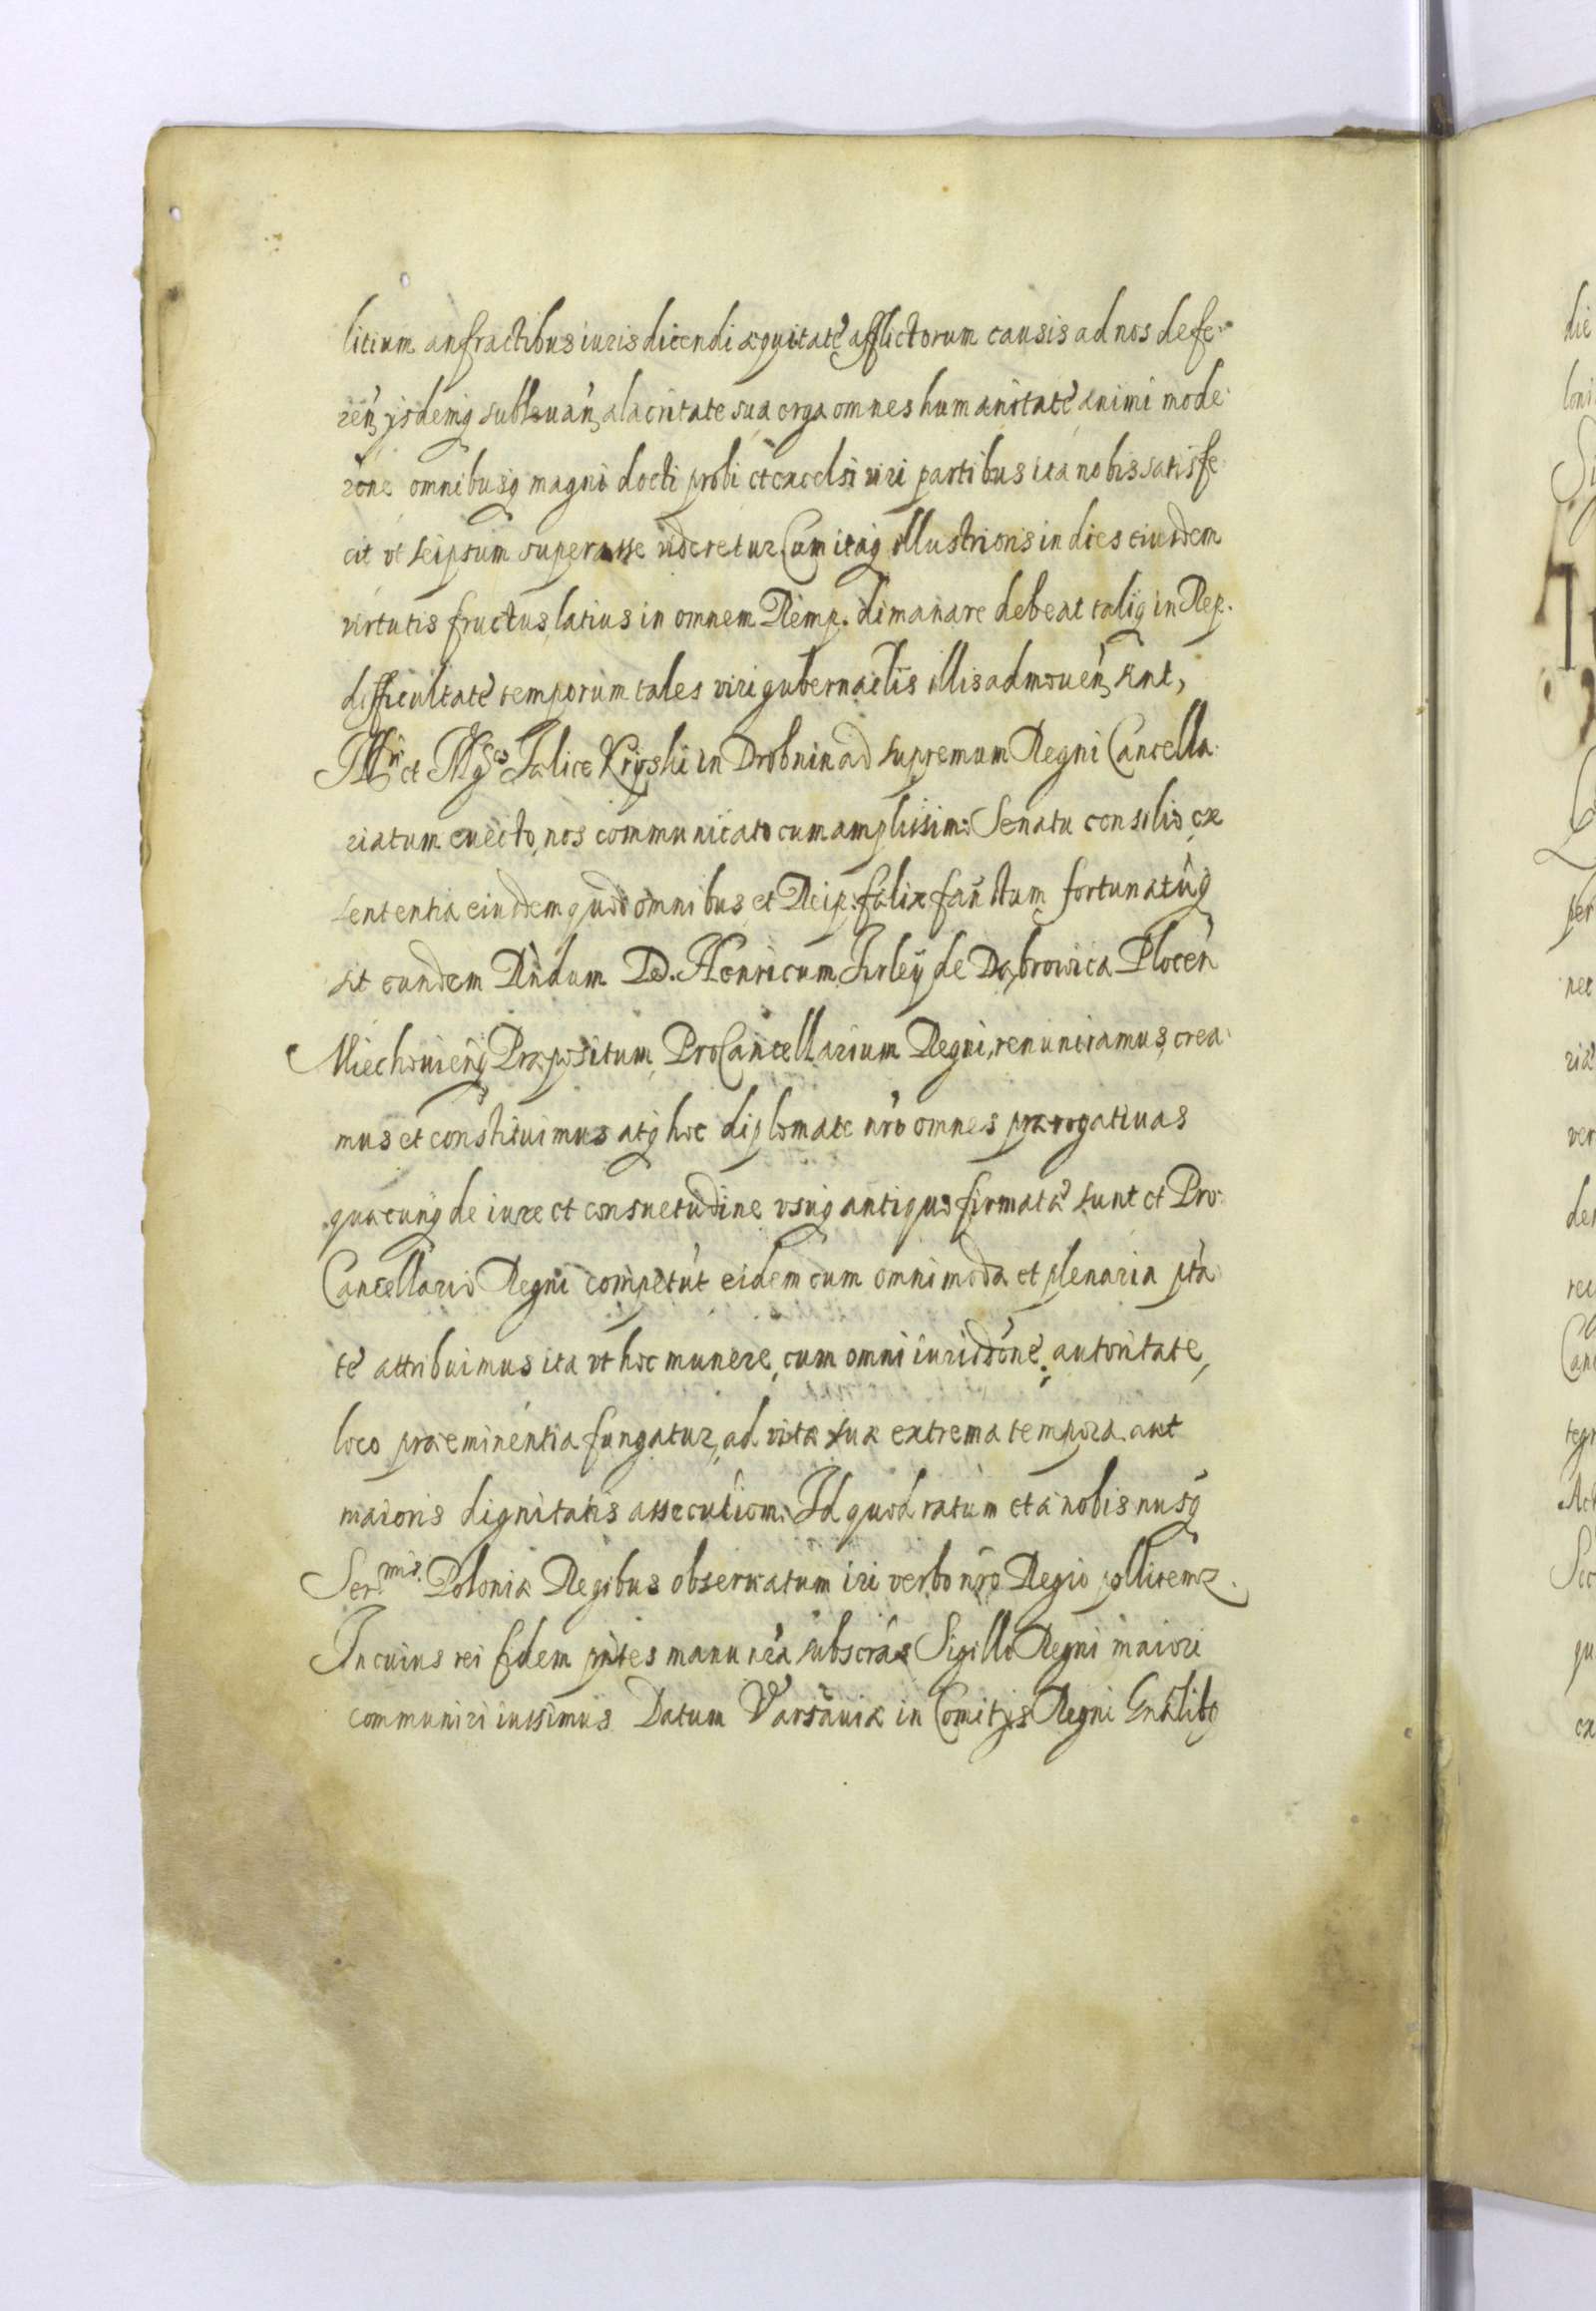 litium anfractibus iuris dicendi æquitate afflictorum causis ad nos defe-
reñ, ijsdemq subleuañ, alacritate sua erga omnes humanitate animi mode-
rone omnibusq magni docti probi et excelsi viri partibus ita nobis satisfe-
cit vt seipsum superasse videretur. Cum itaq illustrioris in dies eiusdem
virtutis fructus, latius in omnem Remp. dimanare debeat taliq in Reip.
difficultate temporum tales viri gubernaclis illis admoueñ, sint,
Illri et Mgco Fælice Krijski in Drobnin ad supremum Regni Cancella-
riatum euecto, nos communicato cum amplissimo Senatu consilio, ex
sententia eiusdem quod omnibus et Reip. fælix faustum fortunatuq
sit eundem Rñdum D. Henricum Firleij de Dąbrowica Plocen
Miechouienq Præpositum, ProCancellarium Regni, renunciamus, crea-
mus et constituimus atq hoc diplomate nro omnes prærogatiuas
quæcunq de iure et consuetudine vsuq antiquo firmatæ sunt et Pro-
Cancellario Regni competut eidem cum omnimoda et plenaria pta-
te attribuimus ita vt hoc munere, cum omni iurisdone, autoritate,
loco præeminentia fungatur, ad vitæ suæ extrema tempora aut
maioris dignitatis assecutiom. Id quod ratum et à nobis nusq
Ser.mis Poloniæ Regibus obseruatum iri verbo nro Regio pollicemr.
In cuius rei fidem pñtes manu nra subscras Sigillo Regni maiori
communiri iussimus Datum Varsauiæ in Comitijs Regni Gnalibq